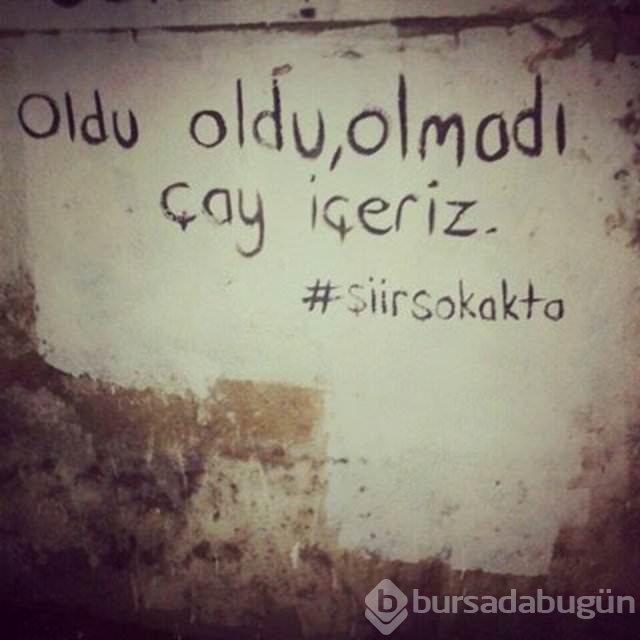 Oldu oldu, olmadı
çay içeriz.
#şiirsokakta
bursadabugün